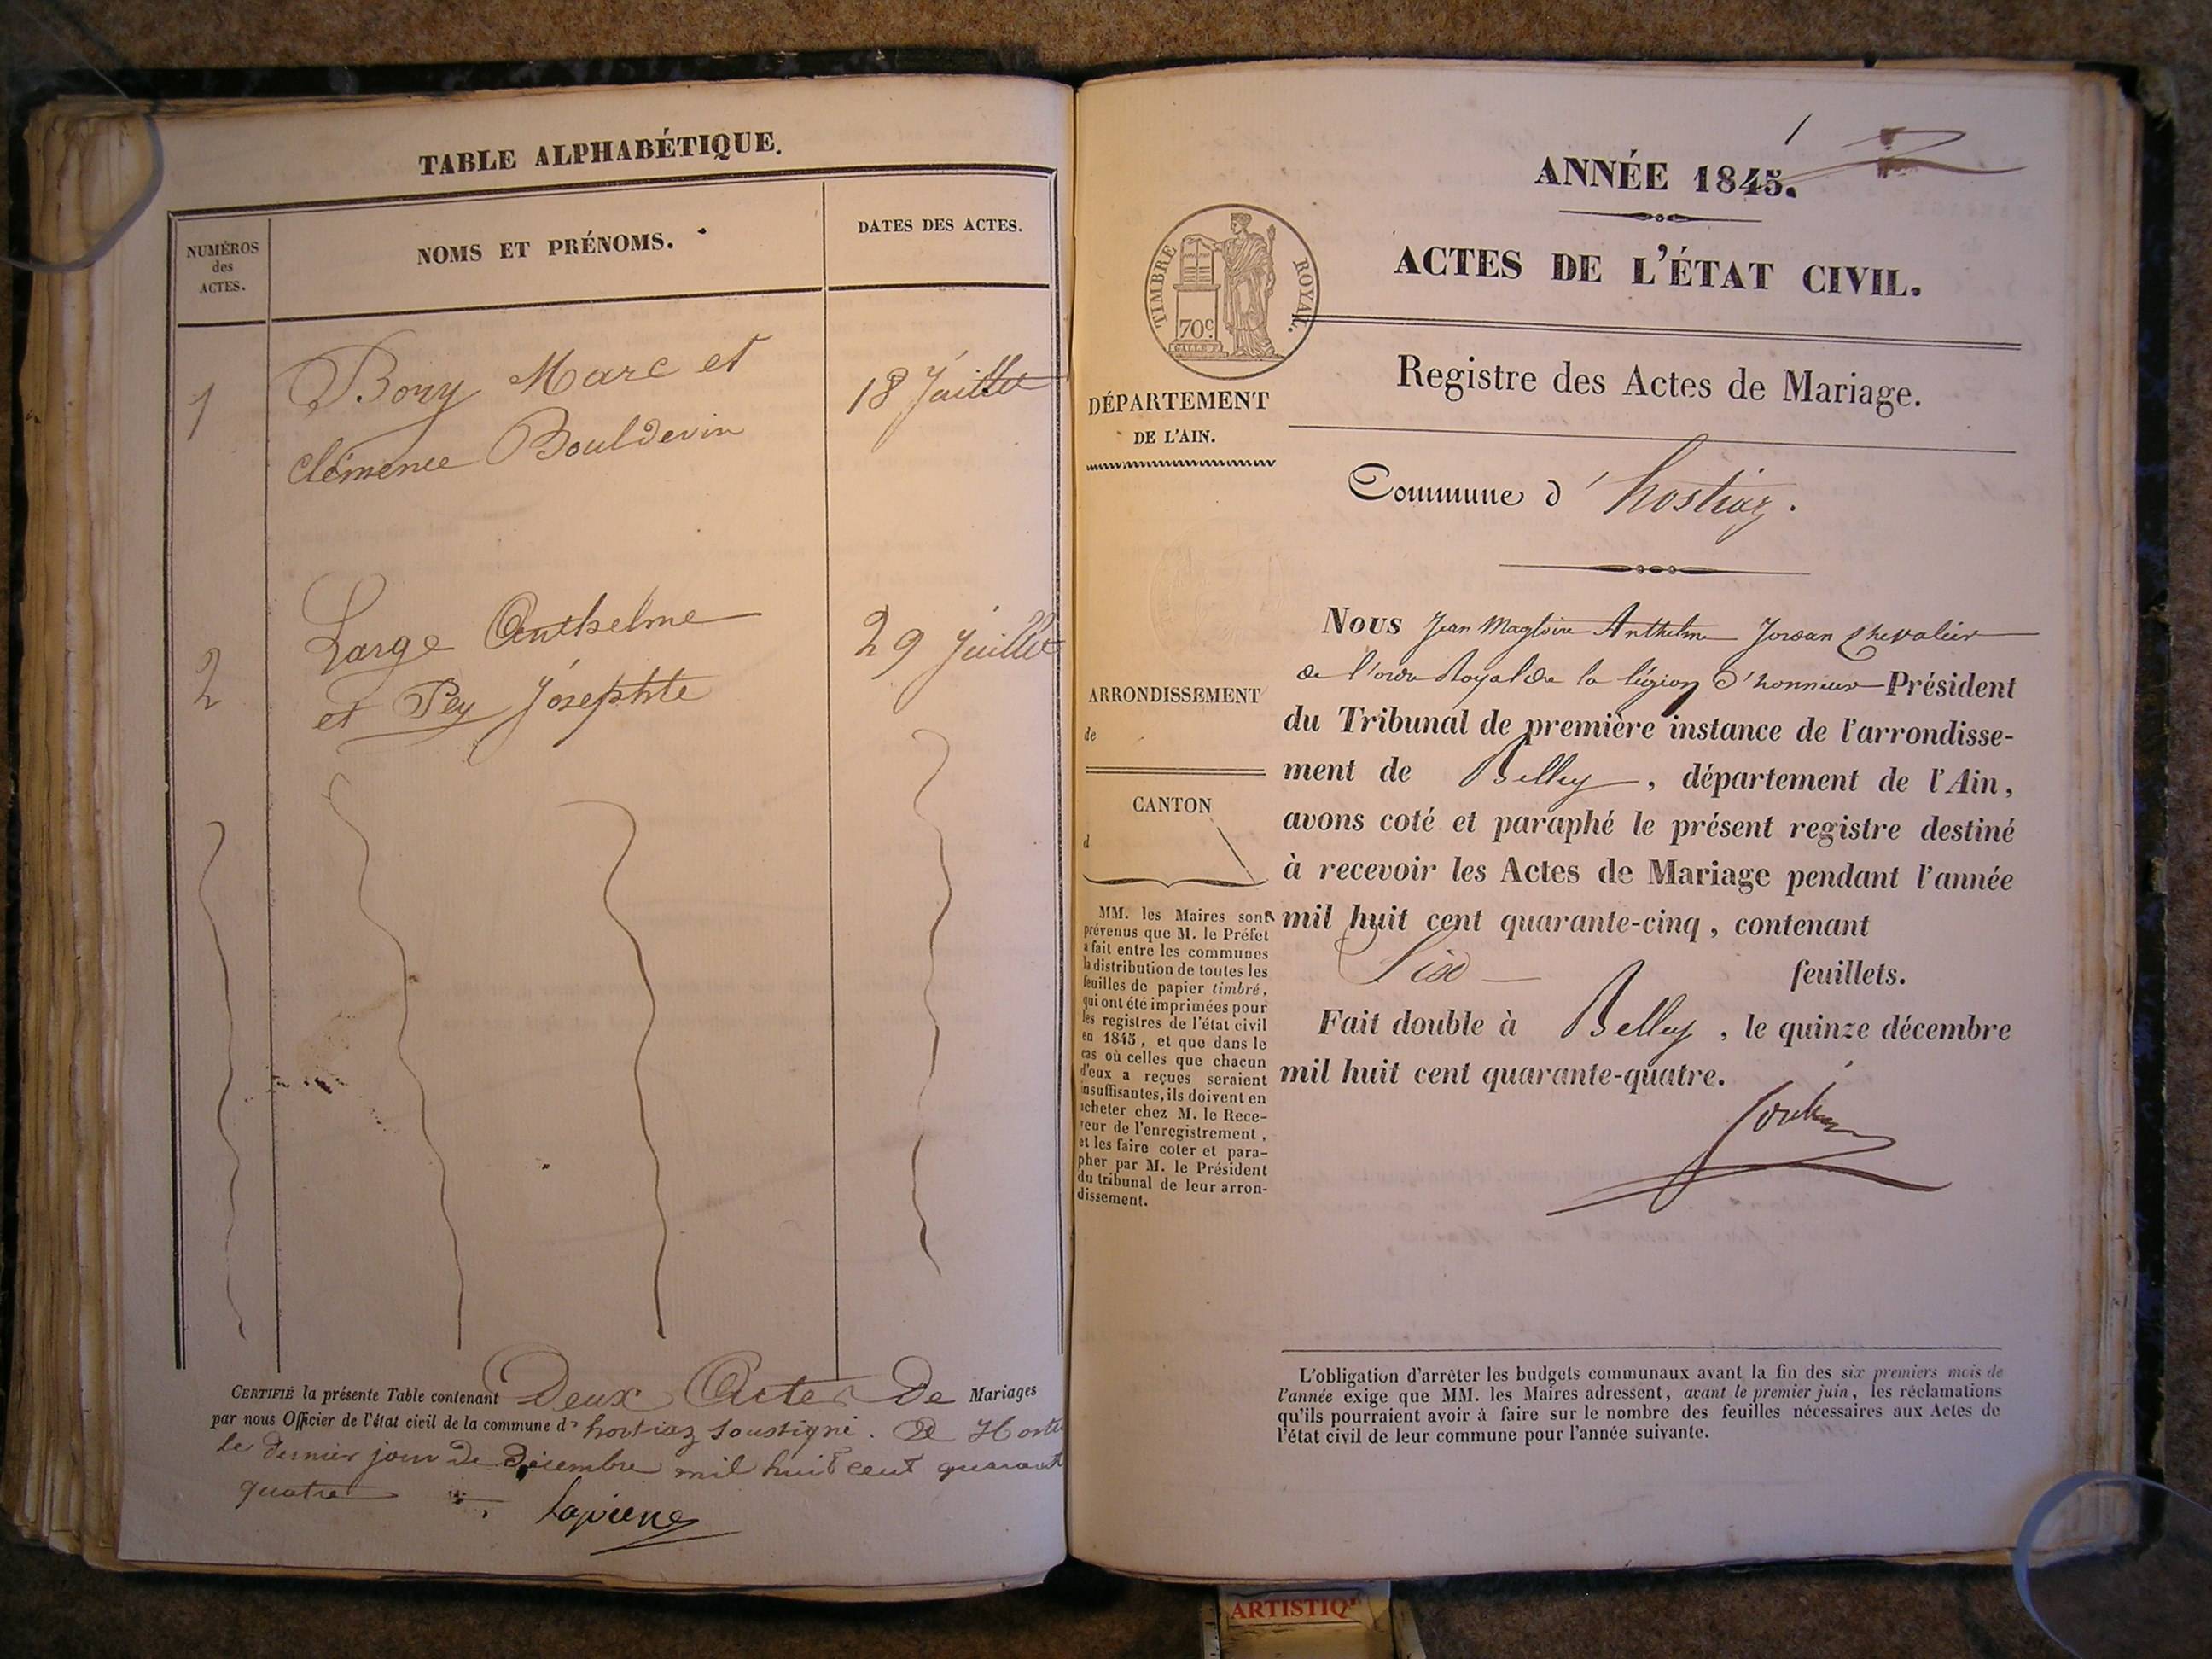 TABLE ALPHABÉTIQUE.
NUMÉROS
des
ACTES.
NOMS ET PRÉNOMS.
DATES DES ACTES.
1
Bony Marc et
18 Juillet
Clémence Bouldevin
2
Large Anthelme
29 Juillet
et Pey Josephte
CERTIFIÉ la présente Table contenant Deux Actes De Mariages
par nous Officier de l'état civil de la commune d' hostiaz soussigné. A Hostia
le dernier jour de Décembre mil huit cent quarant
quatre
1
ANNÉE 1845.
ACTES DE L'ÉTAT CIVIL.
TIMBRE ROYAL.
70c
Registre des Actes de Mariage.
DÉPARTEMENT
DE L'AIN.
Commune d'hostiaz.
ARRONDISSEMENT
de
CANTON
d
Nous Jean Magloire Anthelme Jordan Chevalier
de l'ordre Royal de la légion d'honneur Président
du Tribunal de première instance de l'arrondisse-
ment de Belley, département de l'Ain,
avons coté et paraphé le présent registre destiné
à recevoir les Actes de Mariage pendant l'année
mil huit cent quarante-cinq, contenant
Six feuillets.
Fait double à Belley, le quinze décembre
mil huit cent quarante-quatre.
MM. les Maires sont
prévenus que M. le Préfet
a fait entre les communes
la distribution de toutes les
feuilles de papier timbré,
qui ont été imprimées pour
les registres de l'état civil
en 1845, et que dans le
cas où celles que chacun
d'eux a reçues seraient
insuffisantes, ils doivent en
acheter chez M. le Rece-
veur de l'enregistrement,
et les faire coter et para-
pher par M. le Président
du tribunal de leur arron-
dissement.
L'obligation d'arrêter les budgets communaux avant la fin des six premiers mois de
l'année exige que MM. les Maires adressent, avant le premier juin, les réclamations
qu'ils pourraient avoir à faire sur le nombre des feuilles nécessaires aux Actes de
l'état civil de leur commune pour l'année suivante.
ARTISTIQ